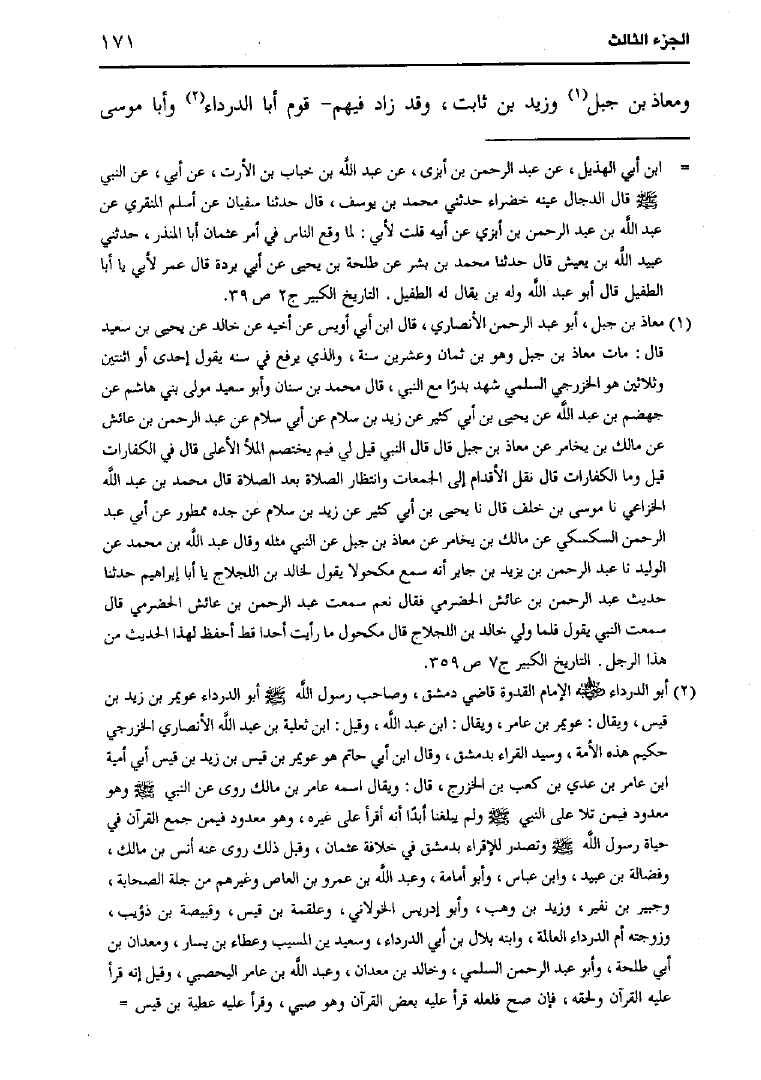 الجزء الثالث ١٧١
ومعاذ بن جبل(١) وزيد بن ثابت ، وقد زاد فيهم– قوم أبا الدرداء(٢) وأبا موسى
= ابن أبي الهذيل ، عن عبد الرحمن بن أبزى ، عن عبد الله بن خباب بن الأرت ، عن أبي ، عن النبي
ﷺ قال الدجال عينه خضراء حدثني محمد بن يوسف ، قال حدثنا سفيان عن أسلم المنقري عن
عبد الله بن عبد الرحمن بن أبزي عن أبيه قلت لأبي : لما وقع الناس في أمر عثمان أبا المنذر ، حدثني
عبيد الله بن يعيش قال حدثنا محمد بن بشر عن طلحة بن يحيى عن أبي بردة قال عمر لأبي يا أبا
الطفيل قال أبو عبد الله وله بن يقال له الطفيل . التاريخ الكبير ج٢ ص ٣٩.
(١) معاذ بن جبل ، أبو عبد الرحمن الأنصاري ، قال ابن أبي أويس عن أخيه عن خالد عن يحيى بن سعيد
قال : مات معاذ بن جبل وهو بن ثمان وعشرين سنة ، والذي يرفع في سنه يقول إحدى أو اثنتين
وثلاثين هو الخزرجي السلمي شهد بدرًا مع النبي ، قال محمد بن سنان وأبو سعيد مولى بني هاشم عن
جهضم بن عبد الله عن يحيى بن أبي كثير عن زيد بن سلام عن أبي سلام عن عبد الرحمن بن عائش
عن مالك بن يخامر عن معاذ بن جبل قال قال النبي قيل لي فيم يختصم الملأ الأعلى قال في الكفارات
قيل وما الكفارات قال نقل الأقدام إلى الجمعات وانتظار الصلاة بعد الصلاة قال محمد بن عبد الله
الخزاعي نا موسى بن خلف قال نا يحيى بن أبي كثير عن زيد بن سلام عن جده ممطور عن أبي عبد
الرحمن السكسكي عن مالك بن يخامر عن معاذ بن جبل عن النبي مثله وقال عبد الله بن محمد عن
الوليد نا عبد الرحمن بن يزيد بن جابر أنه سمع مكحولا يقول لخالد بن اللجلاج يا أبا إبراهيم حدثنا
حديث عبد الرحمن بن عائش الحضرمي فقال نعم سمعت عبد الرحمن بن عائش الحضرمي قال
سمعت النبي يقول فلما ولي خالد بن اللجلاج قال مكحول ما رأيت أحدا قط أحفظ لهذا الحديث من
هذا الرجل . التاريخ الكبير ج٧ ص ٣٥٩.
(٢) أبو الدرداء رضي الله عنه الإمام القدوة قاضي دمشق ، وصاحب رسول الله ﷺ أبو الدرداء عويمر بن زيد بن
قيس ، ويقال : عويمر بن عامر ، ويقال : ابن عبد الله ، وقيل : ابن ثعلبة بن عبد الله الأنصاري الخزرجي
حكيم هذه الأمة ، وسيد القراء بدمشق ، وقال ابن أبي حاتم هو عويمر بن قيس بن زيد بن قيس أبي أمية
ابن عامر بن عدي بن كعب بن الخزرج ، قال : ويقال اسمه عامر بن مالك روى عن النبي ﷺ وهو
معدود فيمن تلا على النبي ﷺ ولم يبلغنا أبدًا أنه أقرأ على غيره ، وهو معدود فيمن جمع القرآن في
حياة رسول الله ﷺ وتصدر للإقراء بدمشق في خلافة عثمان ، وقبل ذلك روى عنه أنس بن مالك ،
وفضالة بن عبيد ، وابن عباس ، وأبو أمامة ، وعبد الله بن عمرو بن العاص وغيرهم من جلة الصحابة ،
وجبير بن نفير ، وزيد بن وهب ، وأبو إدريس الخولاني ، وعلقمة بن قيس ، وقبيصة بن ذؤيب ،
وزوجته أم الدرداء العالمة ، وابنه بلال بن أبي الدرداء ، وسعيد ين المسيب وعطاء بن يسار ، ومعدان بن
أبي طلحة ، وأبو عبد الرحمن السلمي ، وخالد بن معدان ، وعبد الله بن عامر اليحصبي ، وقيل إنه قرأ
عليه القرآن ولحقه ، فإن صح فلعله قرأ عليه بعض القرآن وهو صبي ، وقرأ عليه عطية بن قيس =